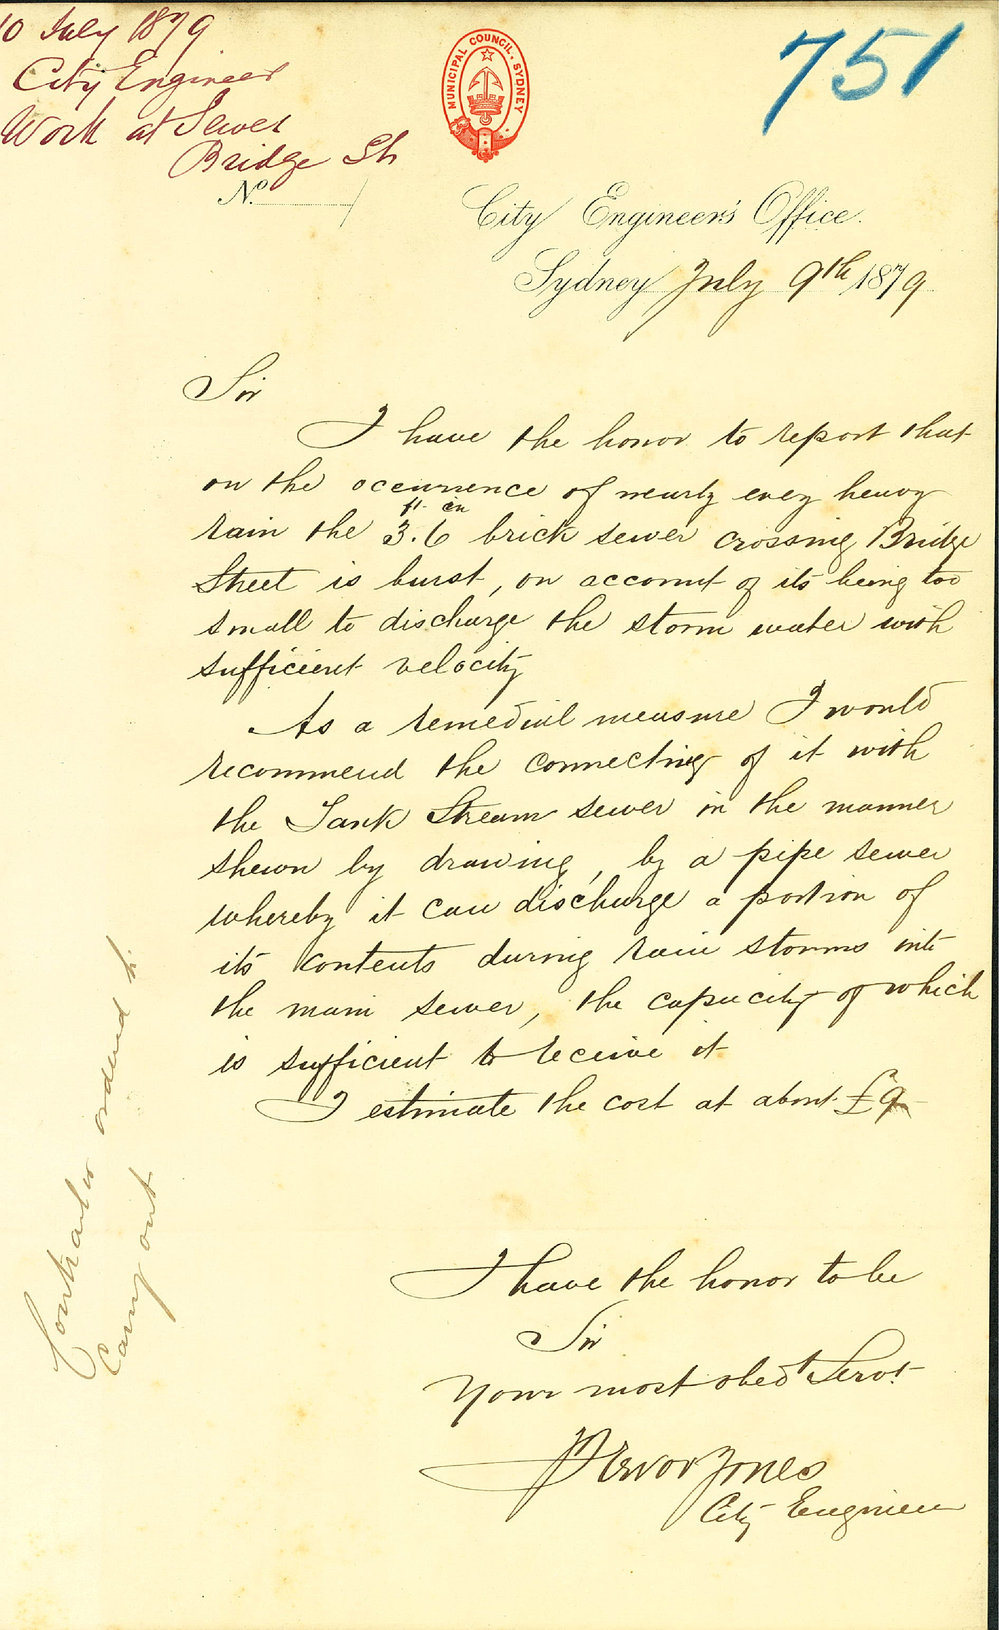 10 July 1879
City Engineer
Work at Sewer
Bridge St
No.
MUNICIPAL COUNCIL. SYDNEY
751
City Engineer's Office.
Sydney July 9th 1879
Sir
I have the honor to report that
on the occurrence of nearly every heavy
rain the 3.6 brick sewer crossing Bridge
ft. in
Street is burst, on account of its being too
small to discharge the storm water with
sufficient velocity
As a remedial measure I would
recommend the connecting of it with
the Tank Stream sewer in the manner
shewn by drawing, by a pipe sewer
whereby it can discharge a portion of
its contents during rain storms into
the main sewer, the capacity of which
is sufficient to receive it
I estimate the cost at about £9
I have the honor to be
Sir
Your most obedt Servt
Trevor Jones
City Engineer
Contractor ordered to
carry out